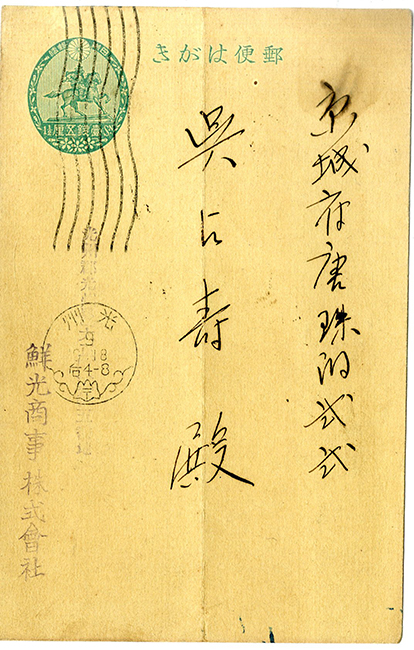 郵便はがき
京城府唐珠洞弐弐
呉占寿殿
光州
后4-8
鮮光商事株式會社